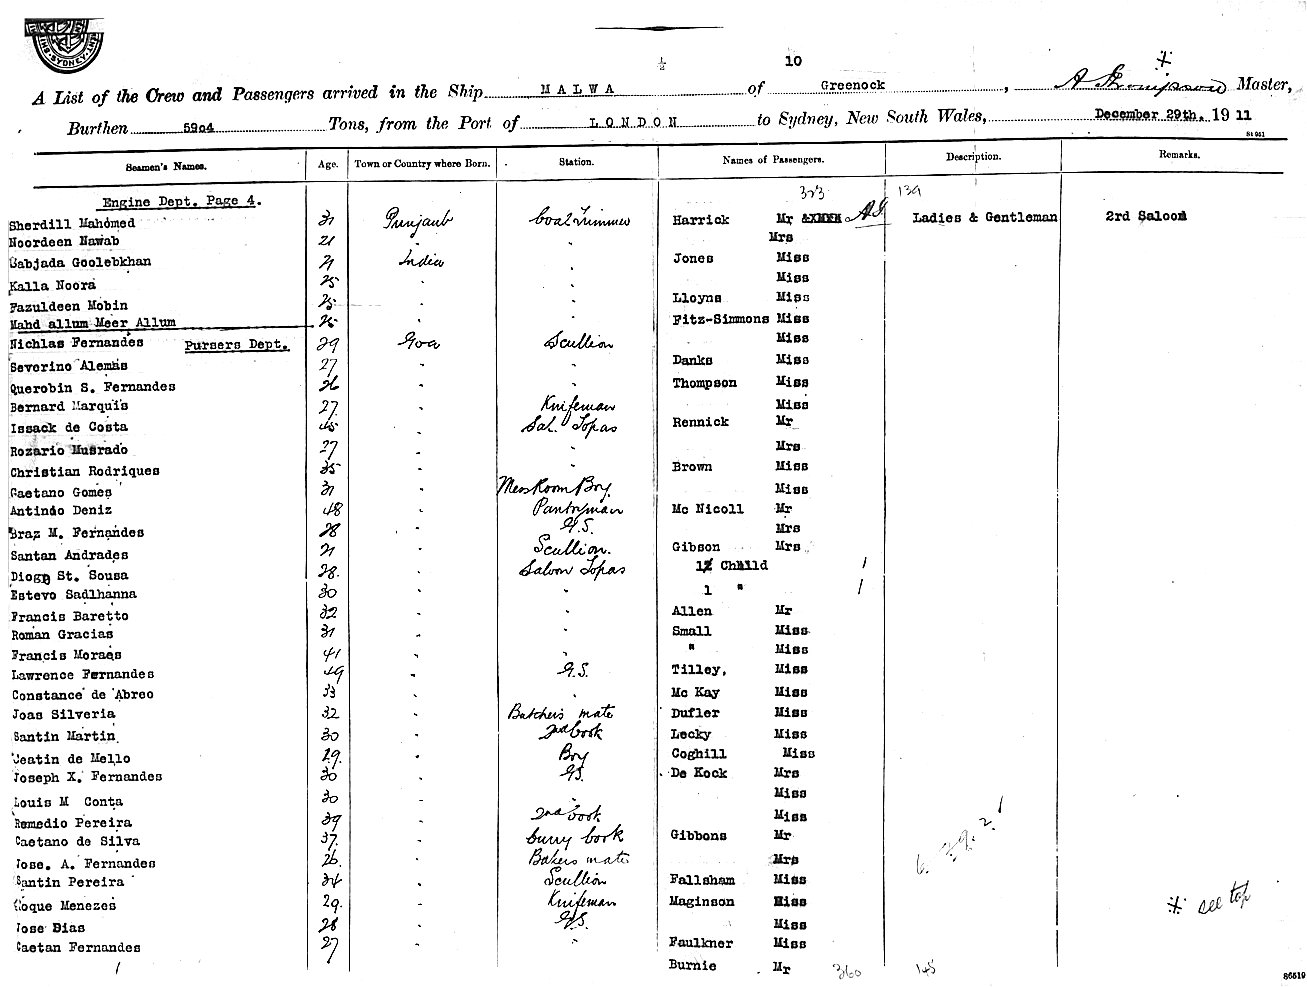 SYDNEY
½ 10
A List of the Crew and Passengers arrived in the Ship MALWA of Greenock, A Master,
Burthen 5904 Tons, from the Port of LONDON to Sydney, New South Wales, December 29th. 1911
Seamen's Names. Age. Town or Country where Born. Station. Names of Passengers. Description. Remarks.
Engine Dept. Page 4. 323 139
Sherdill Mahomed 31 Punjaub Coal Trimmer Harrick Mr Ladies & Gentleman 2rd Saloon
Noordeen Nawab 21 " " Mrs
Babjada Goolebkhan 21 India " Jones Miss
Kalla Noora 25 " " Miss
Fazuldeen Mobin 25 " " Lloyns Miss
Mahd allum Meer Allum 25 " " Fitz-Simmons Miss
Nichlas Fernandes Pursers Dept. 29 Goa Scullion Miss
Severino Alemas 27 " " Danks Miss
Querobin S. Fernandes 26 " " Thompson Miss
Bernard Marquis 27 " Knifeman Miss
Issack de Costa 45 " Sal. Topas Rennick Mr
Rozario Musrado 27 " " Mrs
Christian Rodriques 35 " " Brown Miss
Caetano Gomes 31 " Mess Room Boy. Miss
Antindo Deniz 48 " Pantryman Mc Nicoll Mr
Braz M. Fernandes 28 " G.S. Mrs
Santan Andrades 21 " Scullion. Gibson Mrs
Diogo St. Sousa 28. " Saloon Topas 1 Chilld 1
Estevo Sadlhanna 30 " " 1 " 1
Francis Baretto 32 " " Allen Mr
Roman Gracias 31 " " Small Miss
Francis Moraes 41 " " " Miss
Lawrence Fernandes 49 " G.S. Tilley, Miss
Constance de Abreo 33 " " Mc Kay Miss
Joas Silveria 32 " Butchers mate Dufler Miss
Santin Martin 30 " 2nd Cook Lecky Miss
Jeatin de Mello 19. " Boy Coghill Miss
Joseph X. Fernandes 30 " GS. De Kock Mrs
Louis M Conta 30 " " Miss
Remedio Pereira 39 " 2nd Cook Miss
Caetano de Silva 37. " Curry Cook Gibbons Mr
Jose. A. Fernandes 26. " Bakers mate Mrs
Santin Pereira 34 " Scullion Fallsham Miss
Roque Menezes 29. " Knifeman Maginson Miss * see top
Jose Dias 28 " GS. Miss
Caetan Fernandes 27 " " Faulkner Miss
1 Burnie Mr 360 145
86519